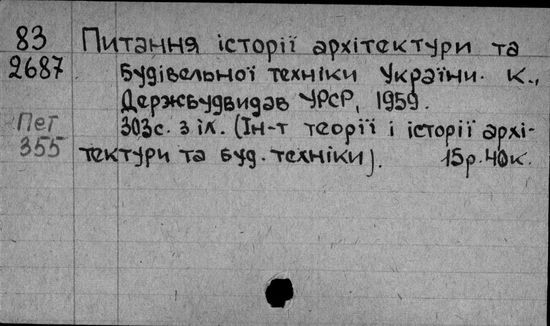 83 Питання історії архітектури та
2687 будівельної техніки України. К.,
Держбудвидав УРСР, 1959.
Пет 303с. з іл. (Ін-т теорії і історії архі-
355 тектури та буд. техніки). 15р. 40к.